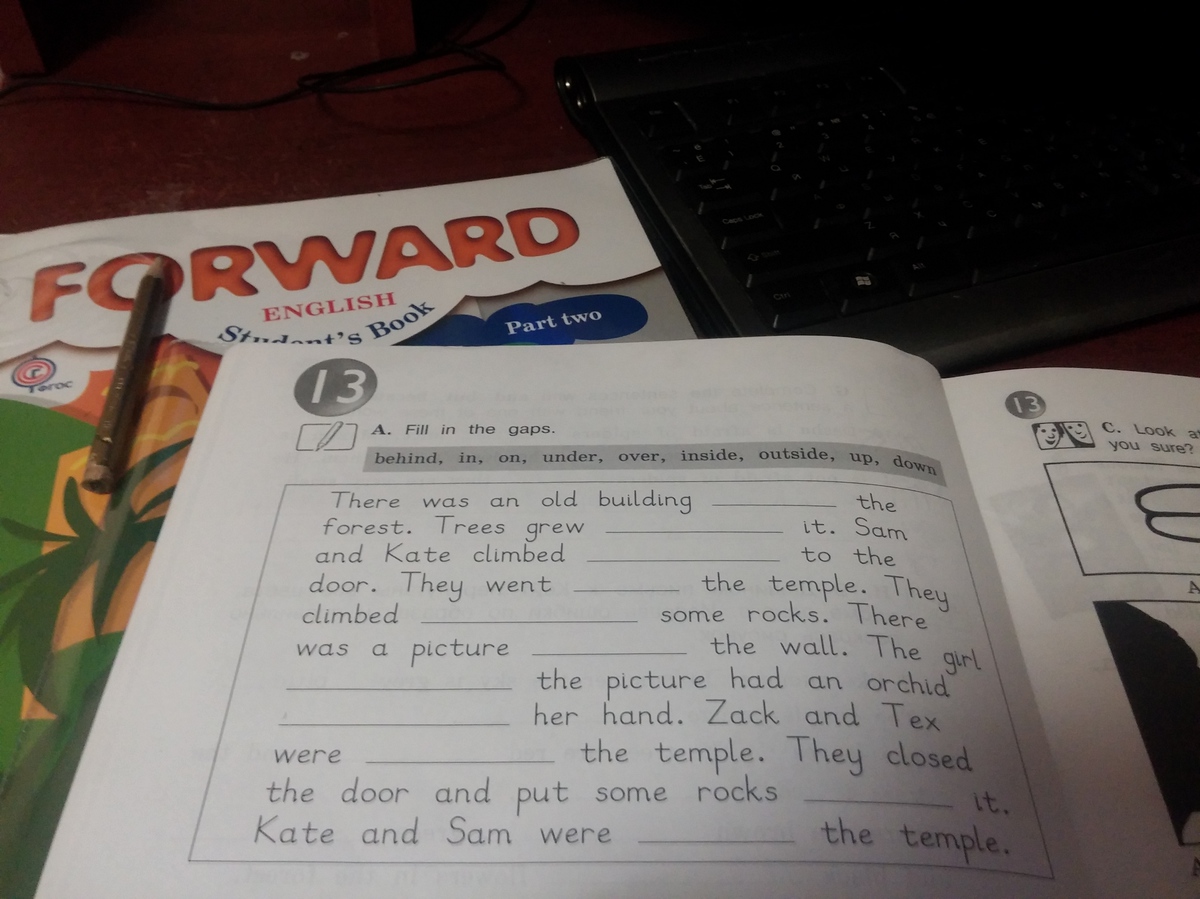 FORWARD
ENGLISH
Student's Book
Part two
13
A. Fill in the gaps.
behind, in, on, under, over, inside, outside, up, down
There was an old building ___ the
forest. Trees grew ___ it. Sam
and Kate climbed ___ to the
door. They went ___ the temple. They
climbed ___ some rocks. There
was a picture ___ the wall. The girl
___ the picture had an orchid
___ her hand. Zack and Tex
were ___ the temple. They closed
the door and put some rocks ___ it.
Kate and Sam were ___ the temple.
13
C. Look
you sure?
Caps Lock
Ctrl
Alt